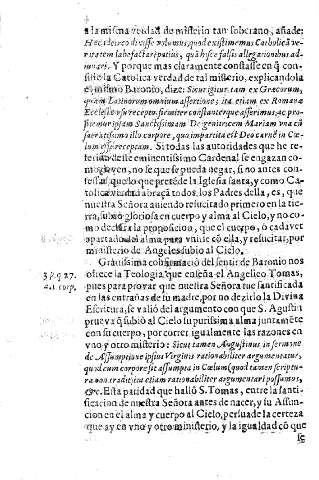 a la misma verdad de misterio tan soberano, añade:
Hæc ideo edidisse volumus, quod existimemus Catholicâ ve-
ritatem labefactari potius, quã hisce falsis allegationibus ad-
iuvari. Y porque mas claramente constasse en q̃ con-
sistio la Catolica verdad de tal misterio, explicandola
el mismo Baronio, dize: Sicut igitur tam ex Græcorum,
quàm Latinorum omnium assertione; ita etiam ex Romana
Ecclesiæ usu recepto, firmiter constanterque asserimus, ac pro-
fitemur ipsam Sanctissimam Dei genitricem Mariam vna cũ
sacratissimo illo corpore, quo impartita est Deo carnẽ in Cœ-
lum esse receptam. Si todas las autoridades que he te-
nido deste eminentissimo Cardenal se engazan co-
mo no se que se pueda negar, si no antes con-
fessar, que lo que pretẽde la Iglesia santa, y como Ca-
tolica verdad abraçò todos los Padres della, es, que
nuestra Señora auiendo resucitado primero en la tie-
rra, subio gloriosa en cuerpo y alma al Cielo, y no co-
mo la proposicion, que el cuerpo, ò cadaver
apartado del alma para vnirse cõ ella, y resucitar, por
ministerio de Angeles subio al Cielo.
Gratissima cõfirmaciõ del sentir de Baronio nos
ofrece la Teologia que enseña el Angelico Tomas,
3. p. q. 27.
pues para provar que nuestra Señora fue santificada
a. 1. corp.
en las entrañas de su madre, por no dezirlo la Divina
Escritura, se valiò del argumento con que S. Agustin
prueva q̃ subiò al Cielo su purissima alma juntamẽte
con su cuerpo, por correr igualmente las razones en
vno y otro misterio: Sicut tamen Augustinus in sermone
de Assumptione ipsius Virginis rationabiliter argumentatur,
quod cum corpore sit assumpta in Cœlum (quod tamen scriptu-
ra non tradit) ita etiam rationabiliter argumentari possumus,
&c. Esta paridad que hallò S. Tomas, entre la santi-
ficacion de nuestra Señora antes de nacer, y su Assun-
cion en el alma y cuerpo al Cielo, persuade la certeza
que ay en vno y otro ministerio, y la igualdad cõ que
se